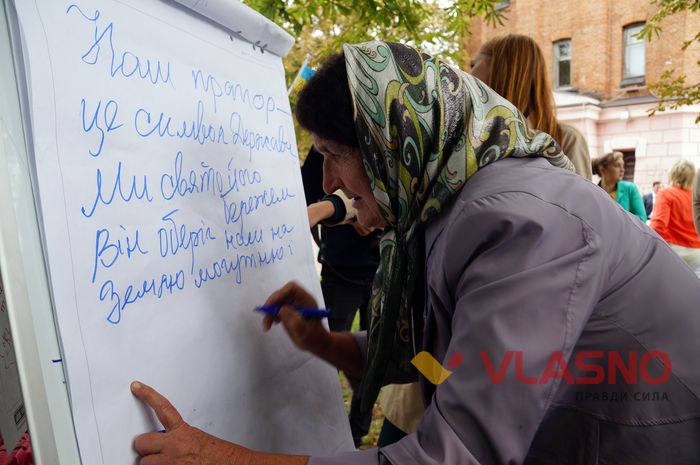 Наш прапор –
це символ Держави
Ми свято його
бережем
Він оберіг наш на
Землю могутню і
VLASNO
ПРАВДИ СИЛА